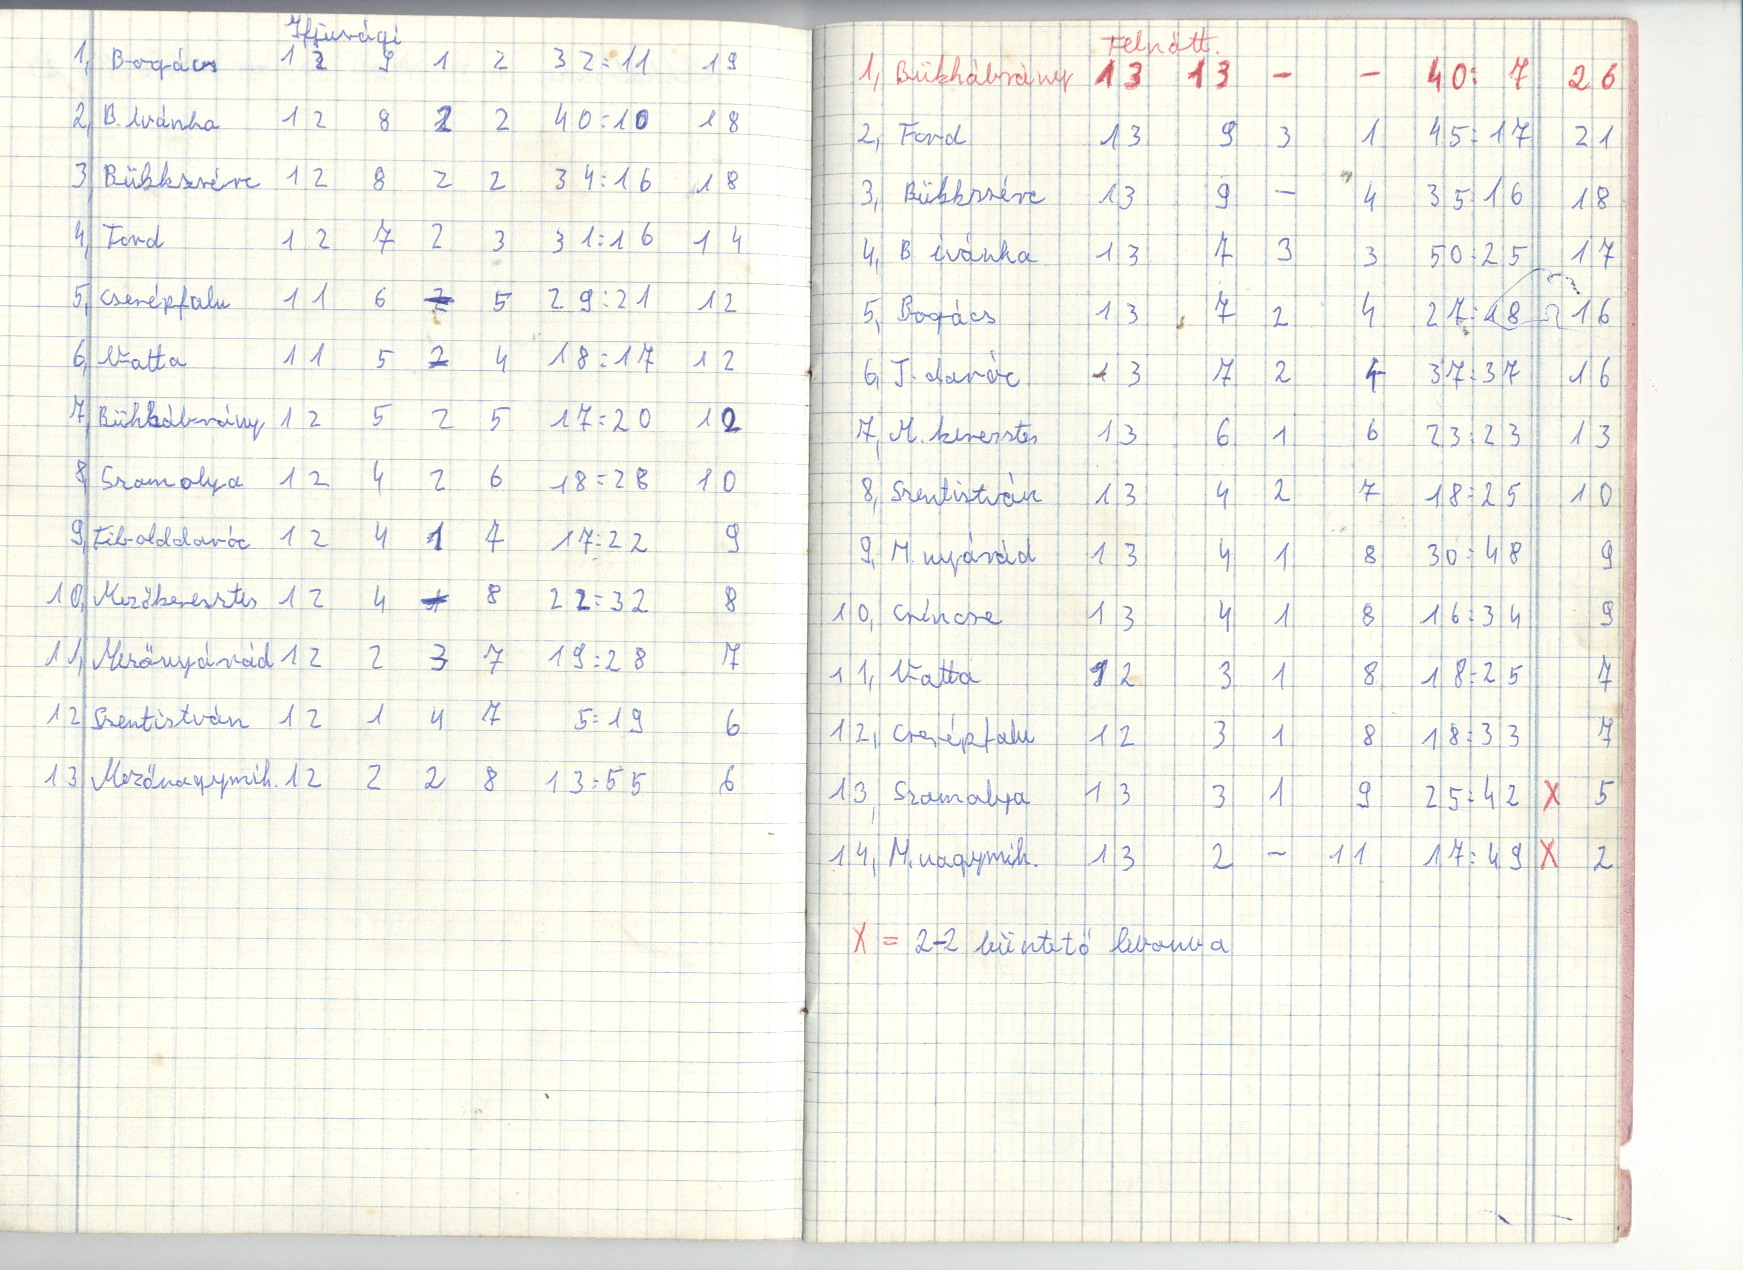 Ifjúsági
1, Bogács 12 9 1 2 32:11 19
2, B. Ivánka 12 8 2 2 40:10 18
3, Bükkszérc 12 8 2 2 34:16 18
4, Tard 12 7 2 3 31:16 14
5, Cserépfalu 11 6 5 29:21 12
6, Vatta 11 5 2 4 18:17 12
7, Bükkábrány 12 5 2 5 17:20 12
8, Szomolya 12 4 2 6 18:28 10
9, Tibolddaróc 12 4 1 7 17:22 9
10, Mezőkeresztes 12 4 8 22:32 8
11, Mezőnyárád 12 2 3 7 19:28 7
12 Szentistván 12 1 4 7 5:19 6
13 Mezőnagymih. 12 2 2 8 13:55 6
Felnőtt.
1, Bükkábrány 13 13 - - 40:7 26
2, Tard 13 9 3 1 45:17 21
3, Bükkszérc 13 9 - 4 35:16 18
4, B ivánka 13 7 3 3 50:25 17
5, Bogács 13 7 2 4 27:18 16
6, T. daróc 13 7 2 4 37:37 16
7, M. keresztes 13 6 1 6 23:23 13
8, Szentistván 13 4 2 7 18:25 10
9, M. nyárád 13 4 1 8 30:48 9
10, Csincse 13 4 1 8 16:34 9
11, Vatta 12 3 1 8 18:25 7
12, Cserépfalu 12 3 1 8 18:33 7
13, Szomolya 13 3 1 9 25:42 X 5
14, M. nagymih. 13 2 - 11 17:49 X 2
X = 2-2 büntető levonva